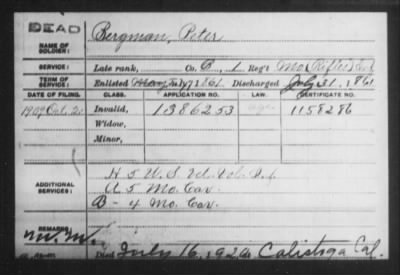 DEAD
NAME OF SOLDIER: Bergman, Peter
SERVICE: Late rank, Co. B, 1 Reg't Mo (Rifles) Inf
TERM OF SERVICE: Enlisted 1861 Discharged July 31, 1861
DATE OF FILING. CLASS. APPLICATION NO. LAW. CERTIFICATE NO.
1907 Oct. 2 Invalid, 1386253 1158286
Widow,
Minor,
ADDITIONAL SERVICES: H 5 U.S. Vet. Vol. Inf
A 5 Mo. Cav.
B - 4 Mo. Cav.
REMARKS:
Died July 16, 1920 Calistoga Cal.